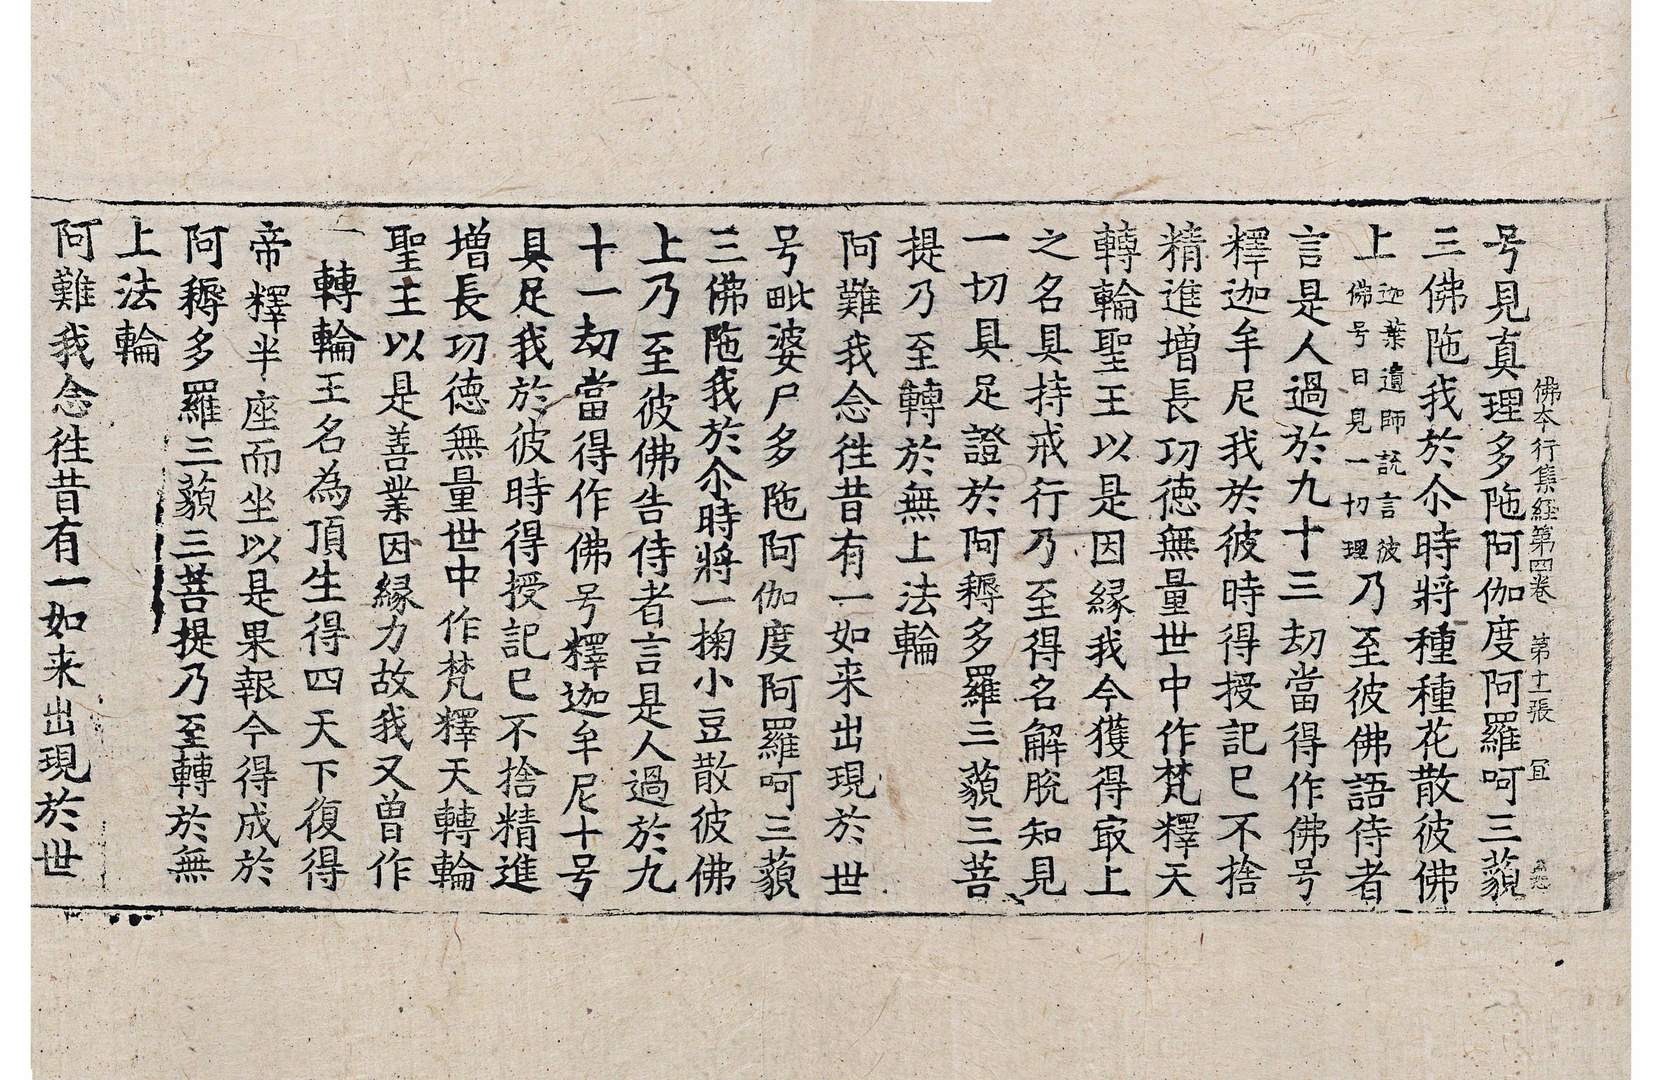 佛本行集経第四卷 第十一張 冝
号見真理多陁阿伽度阿羅呵三藐
三佛陁我於尒時將種種花散彼佛
上迦葉遺師説言彼佛号日見一切理乃至彼佛語侍者
言是人過於九十三劫當得作佛号
釋迦牟尼我於彼時得授記已不捨
精進增長功徳無量世中作梵釋天
轉輪聖王以是因縁我今獲得㝡上
之名具持戒行乃至得名解脫知見
一切具足證於阿耨多羅三藐三菩
提乃至轉於無上法輪
阿難我念徃昔有一如来出現於世
号毗婆尸多陁阿伽度阿羅呵三藐
三佛陁我於尒時將一掬小豆散彼佛
上乃至彼佛告侍者言是人過於九
十一劫當得作佛号釋迦牟尼十号
具足我於彼時得授記已不捨精進
增長功徳無量世中作梵釋天轉輪
聖王以是善業因縁力故我又曾作
轉輪王名為頂生得四天下復得
帝釋半座而坐以是果報今得成於
阿耨多羅三藐三菩提乃至轉於無
上法輪
阿難我念徃昔有一如来出現於世